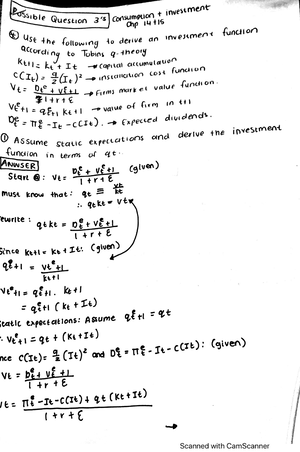 Possible Question 3's Consumption + investment
Chp 14+15
Use the following to derive an investment function
according to Tobins q-theory
Kt+1 = Kt + It → capital accumulation
C(It) = a/2 (It)² → installation cost function
Vt = Dt^e + Vt^e+1 / 1 + r + ε → Firms market value function.
Vt^e+1 = qt^e+1 Kt+1 → value of firm in t+1
Dt^e = Πt^e - It - C(It). → Expected dividends.
① Assume static expectations and derive the investment
function in terms of qt.
ANSWER
Start @: Vt = Dt^e + Vt^e+1 / 1 + r + ε (given)
must know that: qt ≡ Vt/Kt
∴ qtKt = Vt
ewrite: qtKt = Dt^e + Vt^e+1 / 1 + r + ε
Since Kt+1 = Kt + It: (given)
qt^e+1 = Vt^e+1 / Kt+1
Vt^e+1 = qt^e+1 . Kt+1
= qt^e+1 (Kt + It)
static expectations: Assume qt^e+1 = qt
∴ Vt^e+1 = qt + (Kt + It)
nce C(It) = a/2 (It)² and Dt^e = Πt^e - It - C(It): (given)
Vt = Dt^e + Vt^e+1 / 1 + r + ε
Vt = Πt^e - It - C(It) + qt (Kt + It) / 1 + r + ε
→
Scanned with CamScanner